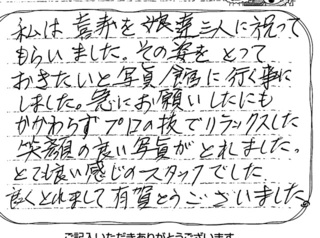 私は喜寿を娘妻三人に祝って
もらいました。その姿をとって
おきたいと写真館に行く事に
しました。急にお願いしたにも
かかわらずプロの技でリラックスした
笑顔の良い写真がとれました。
とても良い感じのスタッフでした
良くとれまして有賀とうございました
ご記入いただきありがとうございます